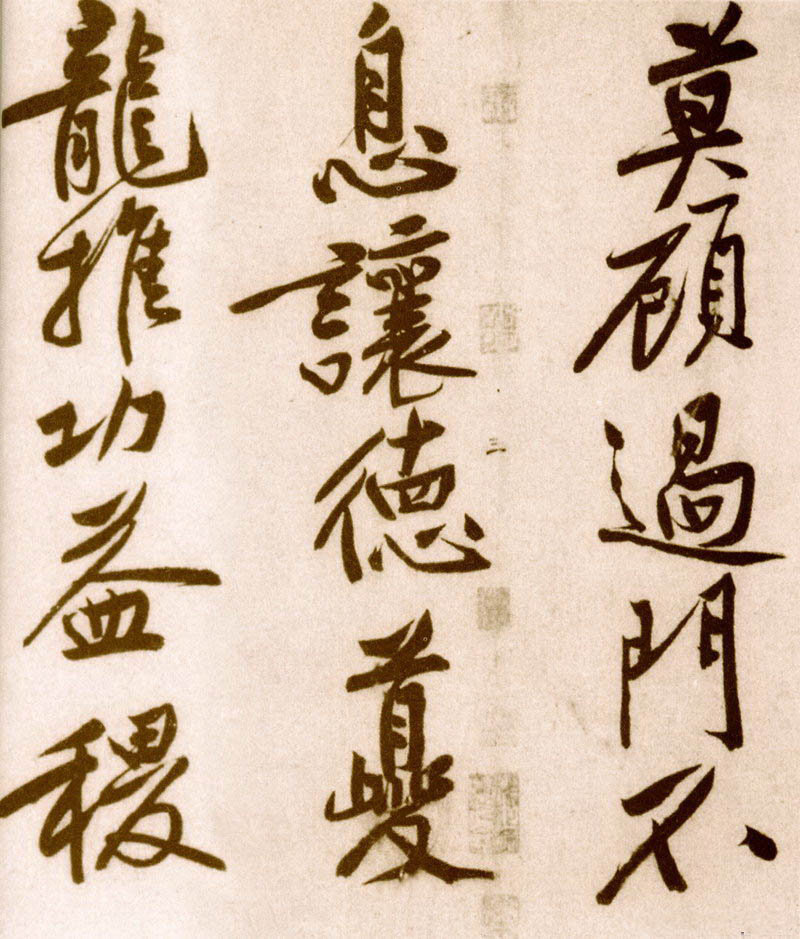 莫顧過門不
息讓德夔
龍推功益稷
三